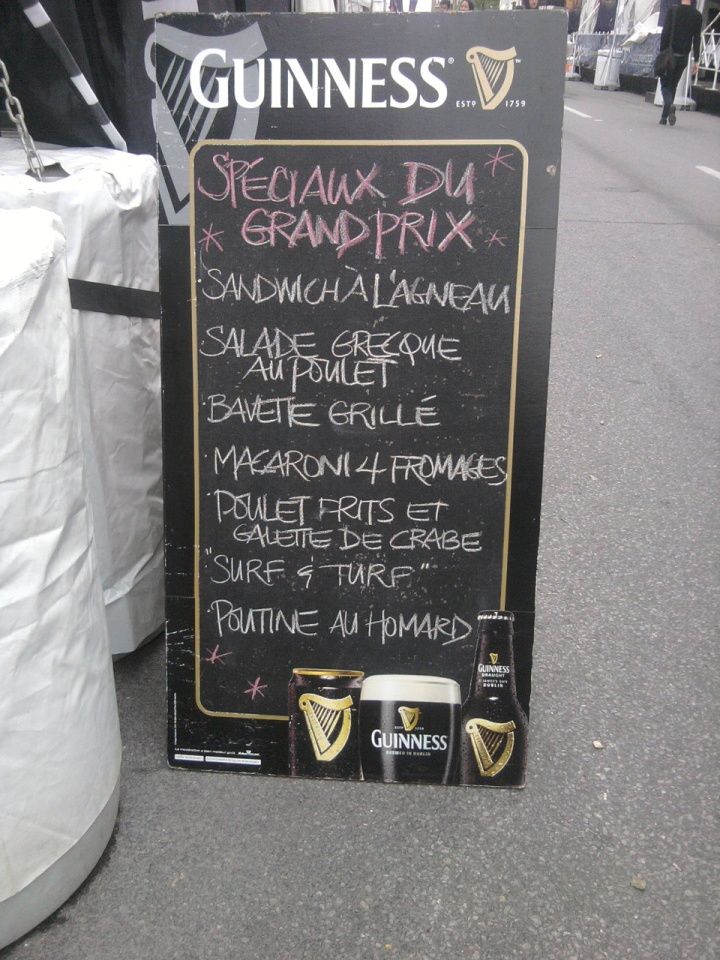 GUINNESS®
ESTD 1759
SPÉCIAUX DU
GRAND PRIX
SANDWICH À L'AGNEAU
SALADE GRECQUE
AU POULET
BAVETTE GRILLÉ
MACARONI 4 FROMAGES
POULET FRITS ET
GALETTE DE CRABE
"SURF & TURF"
POUTINE AU HOMARD
GUINNESS
DRAUGHT
DUBLIN
GUINNESS
BREWED IN DUBLIN